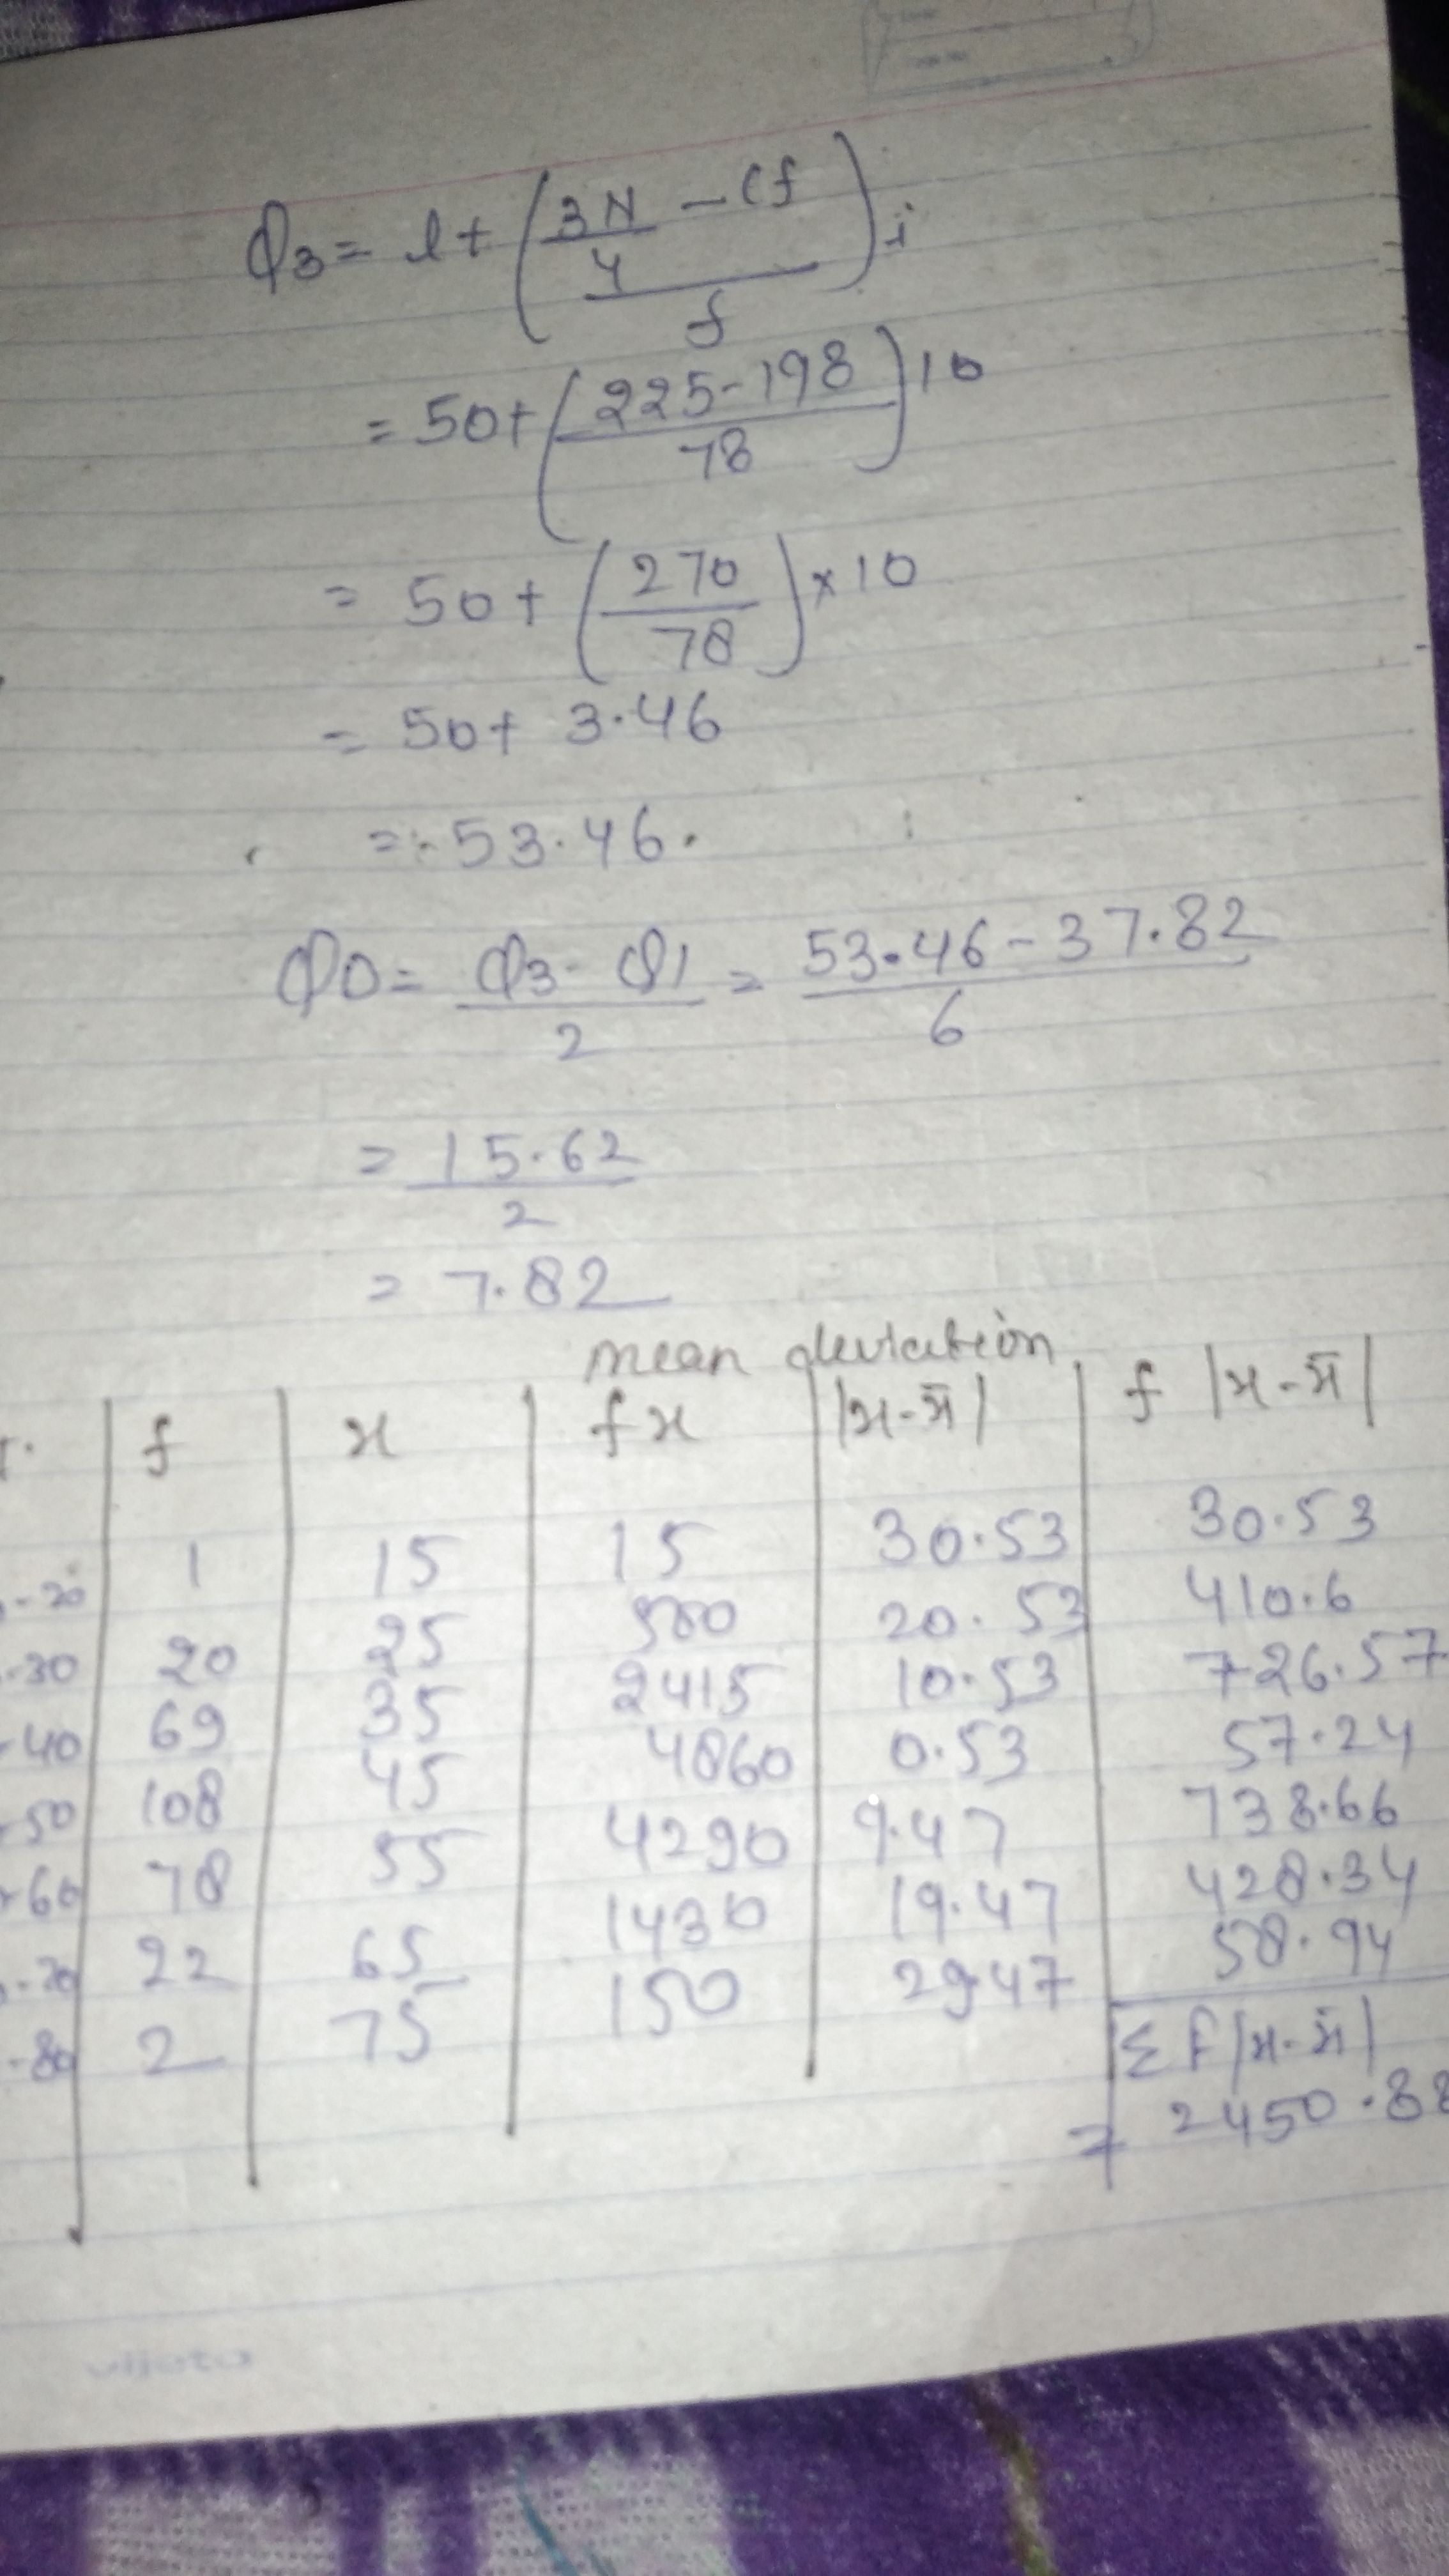 Q3 = l + (3N/4 - Cf / f) i
= 50 + (225 - 198 / 78) 10
= 50 + (270 / 78) × 10
= 50 + 3.46
= 53.46.
QD = Q3 - Q1 / 2 = 53.46 - 37.82 / 6
= 15.62 / 2
= 7.82
mean deviation
f x fx |x-x̄| f |x-x̄|
-20 1 15 15 30.53 30.53
-30 20 25 500 20.53 410.6
-40 69 35 2415 10.53 726.57
-50 108 45 4860 0.53 57.24
-60 78 55 4290 9.47 738.66
-70 22 65 1430 19.47 428.34
-80 2 75 150 29.47 58.94
Σ f |x-x̄|
= 2450.88